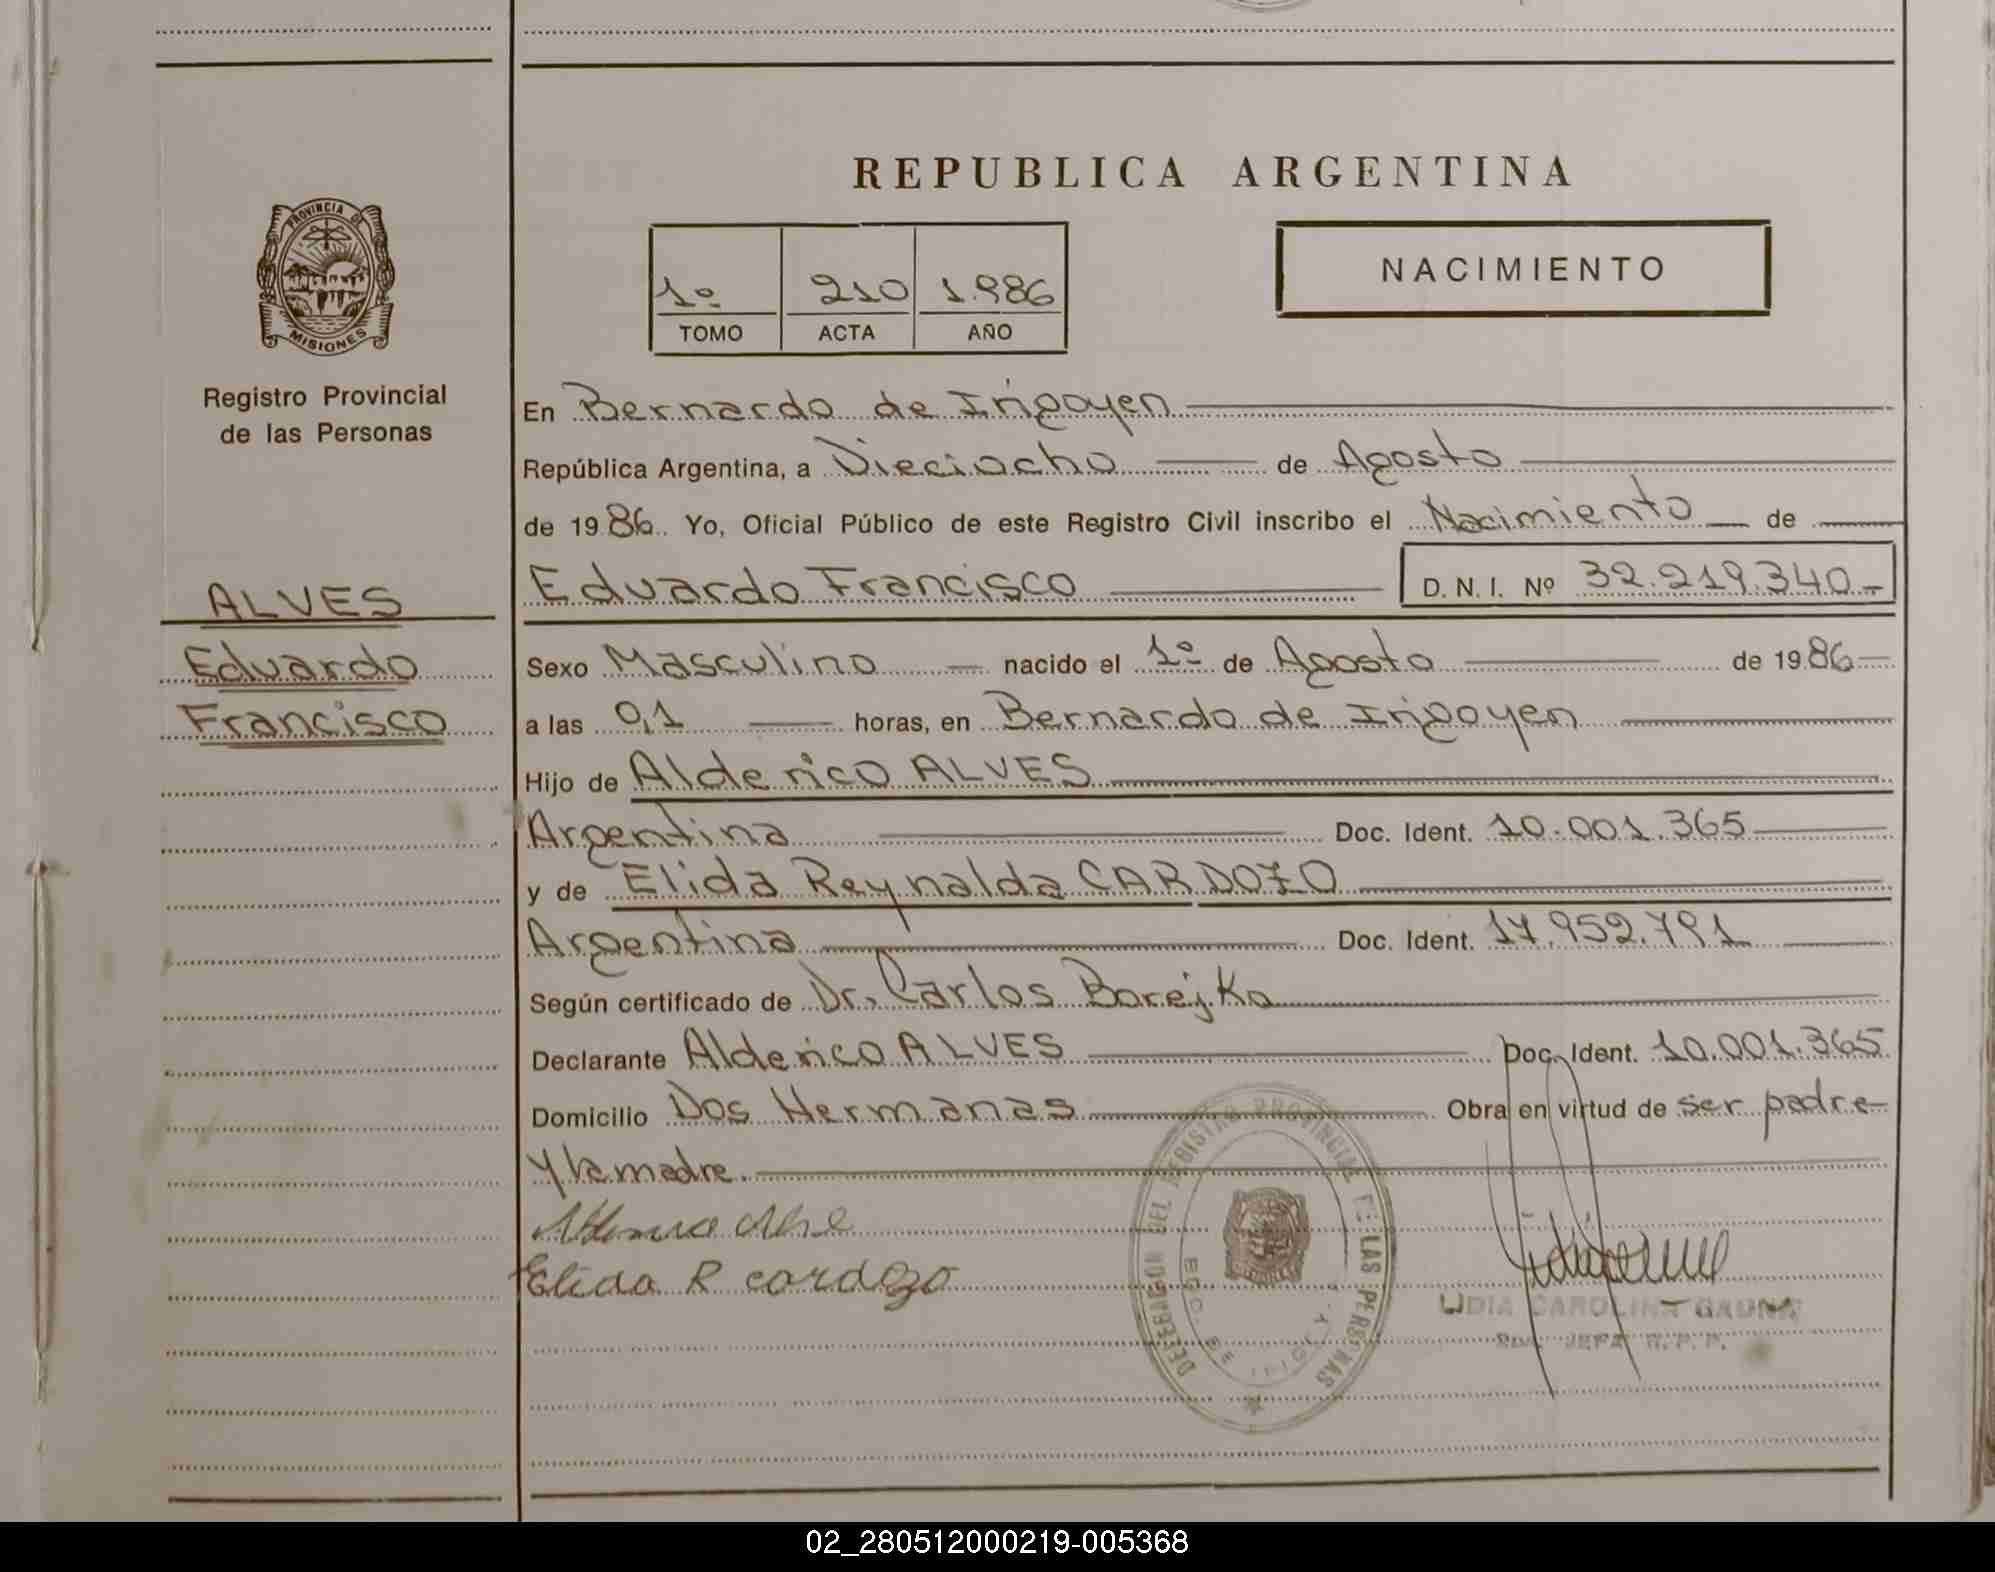 REPUBLICA ARGENTINA
PROVINCIA DE
MISIONES
Registro Provincial
de las Personas
ALVES
Eduardo
Francisco
1º 210 1.986
TOMO ACTA AÑO
NACIMIENTO
En Bernardo de Irigoyen
República Argentina, a Dieciocho de Agosto
de 1986. Yo, Oficial Público de este Registro Civil inscribo el Nacimiento de
Eduardo Francisco D. N. I. Nº 32.219.340.-
Sexo Masculino nacido el 1º de Agosto de 1986
a las 0,1 horas, en Bernardo de Irigoyen
Hijo de Alderico ALVES
Argentina Doc. Ident. 10.001.365
y de Elida Reynalda CARDOZO
Argentina Doc. Ident. 17.952.791
Según certificado de Dr. Carlos Borejko
Declarante Alderico ALVES Doc. Ident. 10.001.365
Domicilio Dos Hermanas Obra en virtud de ser padre
y la madre.
Elida R cardozo
DELEGACION DEL REGISTRO PROVINCIAL DE LAS PERSONAS
LIDIA CAROLINA GAUNA
JEFA R. P. P.
02_280512000219-005368